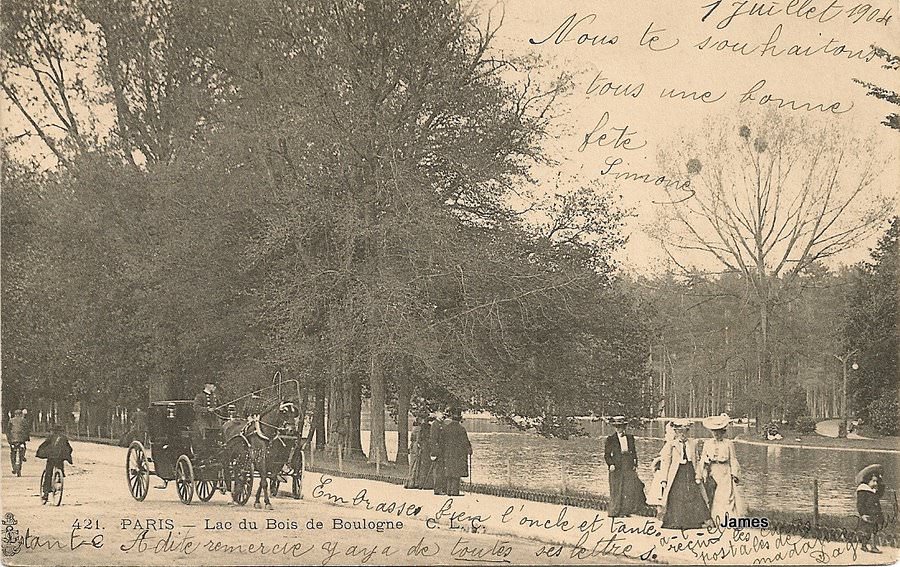 1 Juillet 1904
Nous te souhaitons
tous une bonne
fête
Simone
Embrasse bien l'oncle et tante
421. PARIS – Lac du Bois de Boulogne C. L. C.
James
a-t-elle reçue les cartes
postales de
madame
tant-e A dite remercie yaya de toutes ses lettres